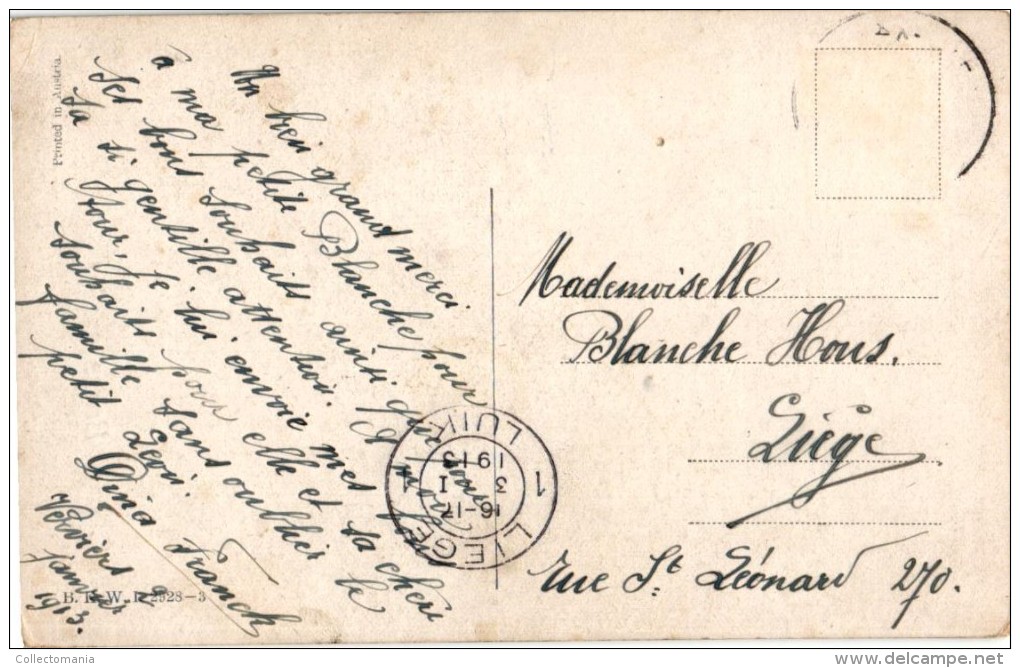 Printed in Austria.
Un bien grand merci
à ma petite Blanche pour
Ses bons Souhaits ainsi que pour
Sa si gentille attention.
Jour, Je lui envoie mes
Souhaits pour elle et sa chère
famille Sans oublier le
petit Léon.
Dina Franck
Verviers
Janvier
1913.
B. K. W. I. 2928-3
LIEGE 1 LUIK 1
16-17
3 I
1913
Mademoiselle
Blanche Hous.
Liége
Rue St Léonard 270.
Collectomania
www.delcampe.net